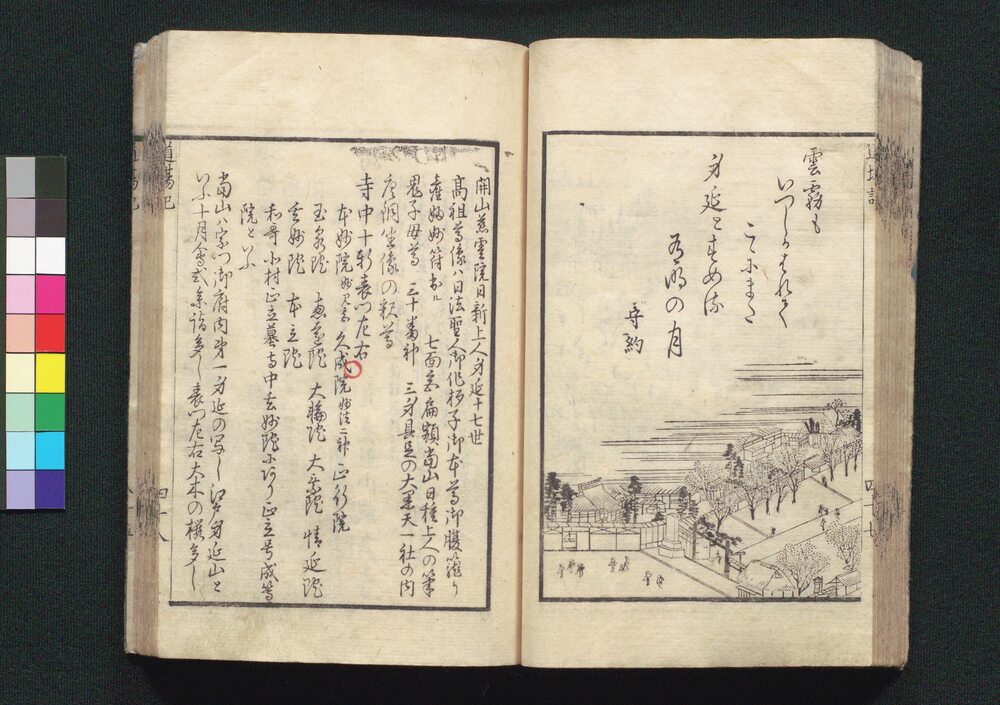 雲霧も
いつしかはれて
こゝにまた
身延とすめる
有明の月
守約
道場記
四十七
開山慈雲院日新上人身延十七世
高祖尊像ハ日法聖人御作 厨子御本尊御腹籠り
産婦妙符出ル 七面宮扁額当山日種上人の筆
鬼子母尊 三十番神 三身具足の大黒天一社の内
唐銅坐像の釈尊
寺中十軒表門左右
本妙院 妙見尊 久成院 妙法二神 正行院
玉泉院 恵光院 大輪院 大乗院 情延院
玄妙院 本立院
和哥 小村正立墓寺中玄妙院にあり正立号成等
院といふ
当山ハ宗門御府内第一身延の写し江戸身延山と
いふ十月会式参詣多し表門左右大木の桜多し
道場記
四十八